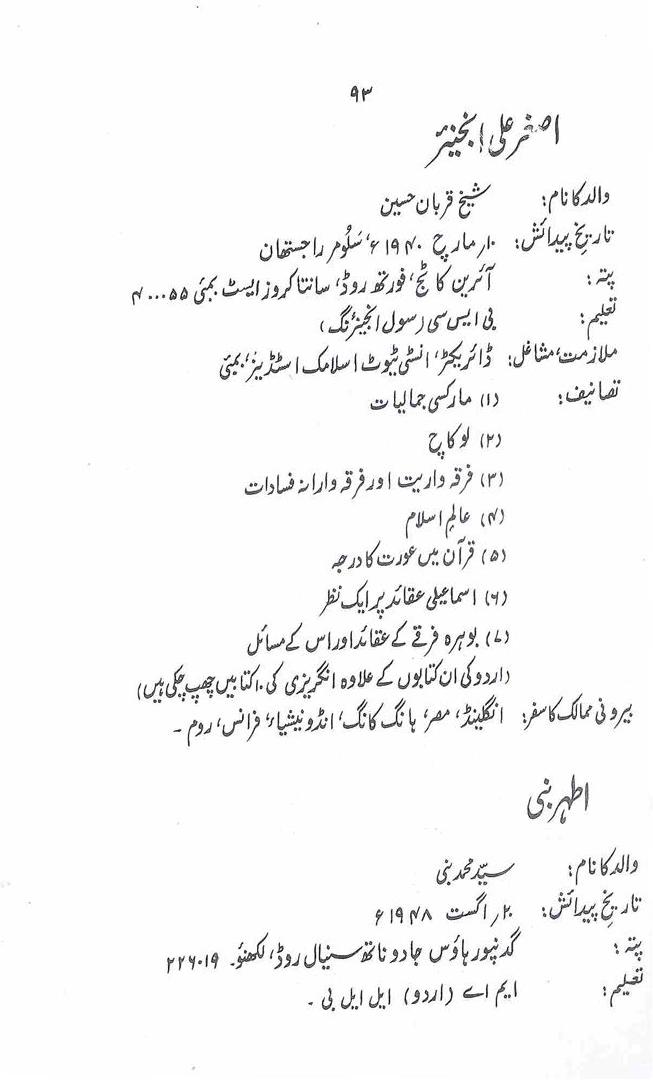 ۹۳
اصغر علی انجینئر
والد کا نام: شیخ قربان حسین
تاریخ پیدائش: ۱۰ر مارچ ۱۹۴۰ء، سلُومر راجستھان
پتہ: آئرین کاٹج، فورتھ روڈ، سانتا کروز ایسٹ بمبئی ۴۰۰۰۵۵
تعلیم: بی ایس سی (سول انجینئرنگ)
ملازمت، مشاغل: ڈائریکٹر، انسٹی ٹیوٹ اسلامک اسٹڈیز، بمبئی
تصانیف: (۱) مارکسی جمالیات
(۲) لوکاچ
(۳) فرقہ واریت اور فرقہ وارانہ فسادات
(۴) عالمِ اسلام
(۵) قرآن میں عورت کا درجہ
(۶) اسماعیلی عقائد پر ایک نظر
(۷) بوہرہ فرقے کے عقائد اور اس کے مسائل
(اردو کی ان کتابوں کے علاوہ انگریزی کی ۱۰ کتابیں چھپ چکی ہیں)
بیرونی ممالک کا سفر: انگلینڈ، مصر، ہانگ کانگ، انڈونیشیاء، فرانس، روم۔
اطہر نبی
والد کا نام: سیّد محمد نبی
تاریخ پیدائش: ۲۰ر اگست ۱۹۴۸ء
پتہ: گدنپور ہاؤس جادو ناتھ سنیال روڈ، لکھنؤ۔ ۲۲۶۰۱۹
تعلیم: ایم اے (اردو) ایل ایل بی۔